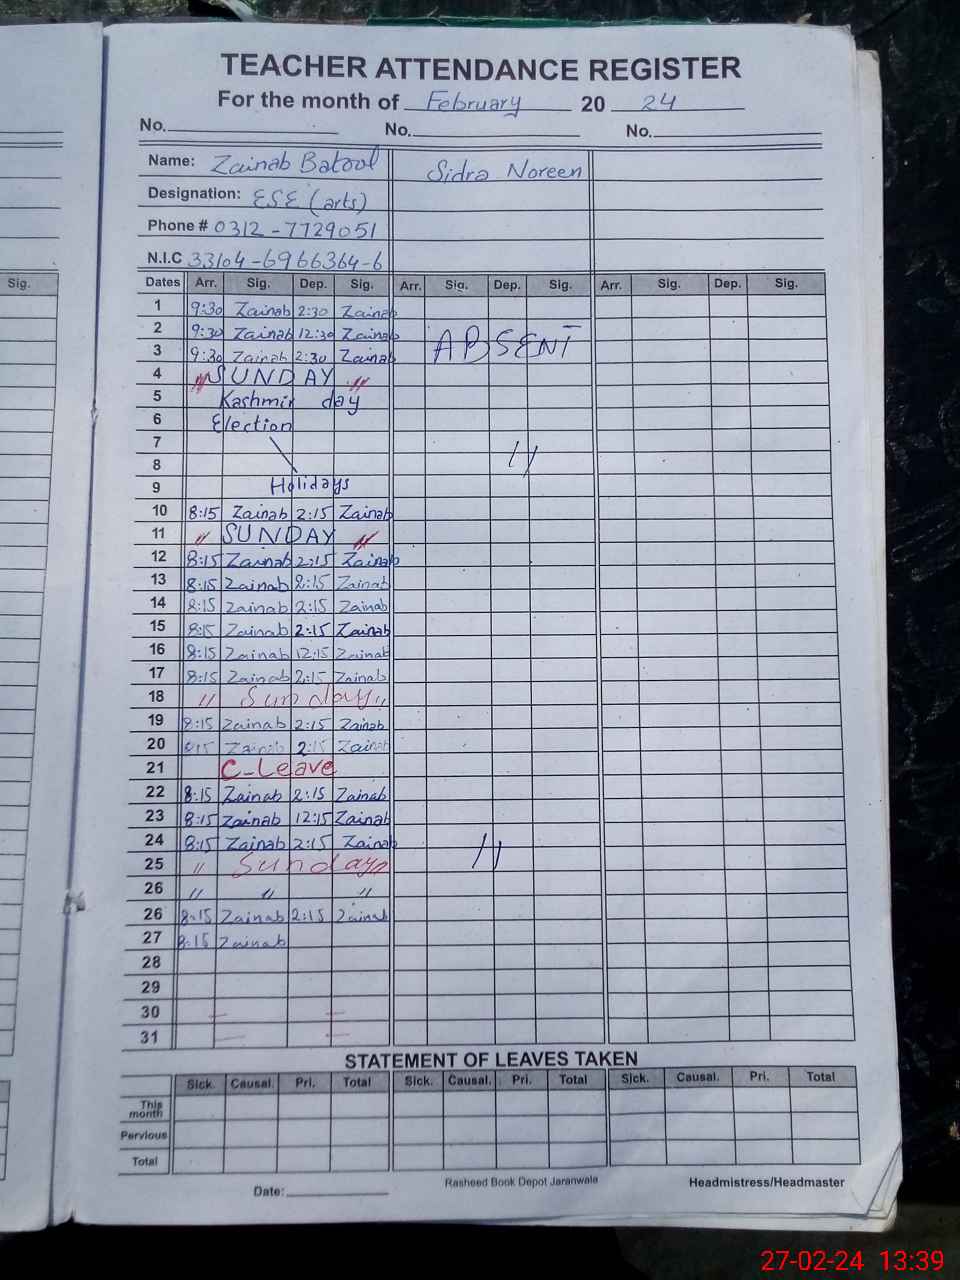 TEACHER ATTENDANCE REGISTER
For the month of February 20 24
No. No. No.
Name: Zainab Batool Sidra Noreen
Designation: ESE (arts)
Phone # 0312-7729051
N.I.C 33104-6966364-6
Sig. Dates Arr. Sig. Dep. Sig. Arr. Sig. Dep. Sig. Arr. Sig. Dep. Sig.
1 9:30 Zainab 2:30 Zainab
2 9:30 Zainab 12:30 Zainab
3 9:30 Zainab 2:30 Zainab ABSENT
4 " SUNDAY "
5 Kashmir day
6 Election
7 "
8
9 Holidays
10 8:15 Zainab 2:15 Zainab
11 " SUNDAY "
12 8:15 Zainab 2:15 Zainab
13 8:15 Zainab 2:15 Zainab
14 8:15 Zainab 2:15 Zainab
15 8:15 Zainab 2:15 Zainab
16 8:15 Zainab 12:15 Zainab
17 8:15 Zainab 2:15 Zainab
18 " Sunday "
19 8:15 Zainab 2:15 Zainab
20 8:15 Zainab 2:15 Zainab
21 C-Leave
22 8:15 Zainab 2:15 Zainab
23 8:15 Zainab 12:15 Zainab
24 8:15 Zainab 2:15 Zainab "
25 " Sunday "
26 " " "
26 8:15 Zainab 2:15 Zainab
27 8:15 Zainab
28
29
30
31
STATEMENT OF LEAVES TAKEN
Sick. Causal. Pri. Total Sick. Causal. Pri. Total Sick. Causal. Pri. Total
This month
Pervious
Total
Date: Rasheed Book Depot Jaranwala Headmistress/Headmaster
27-02-24 13:39